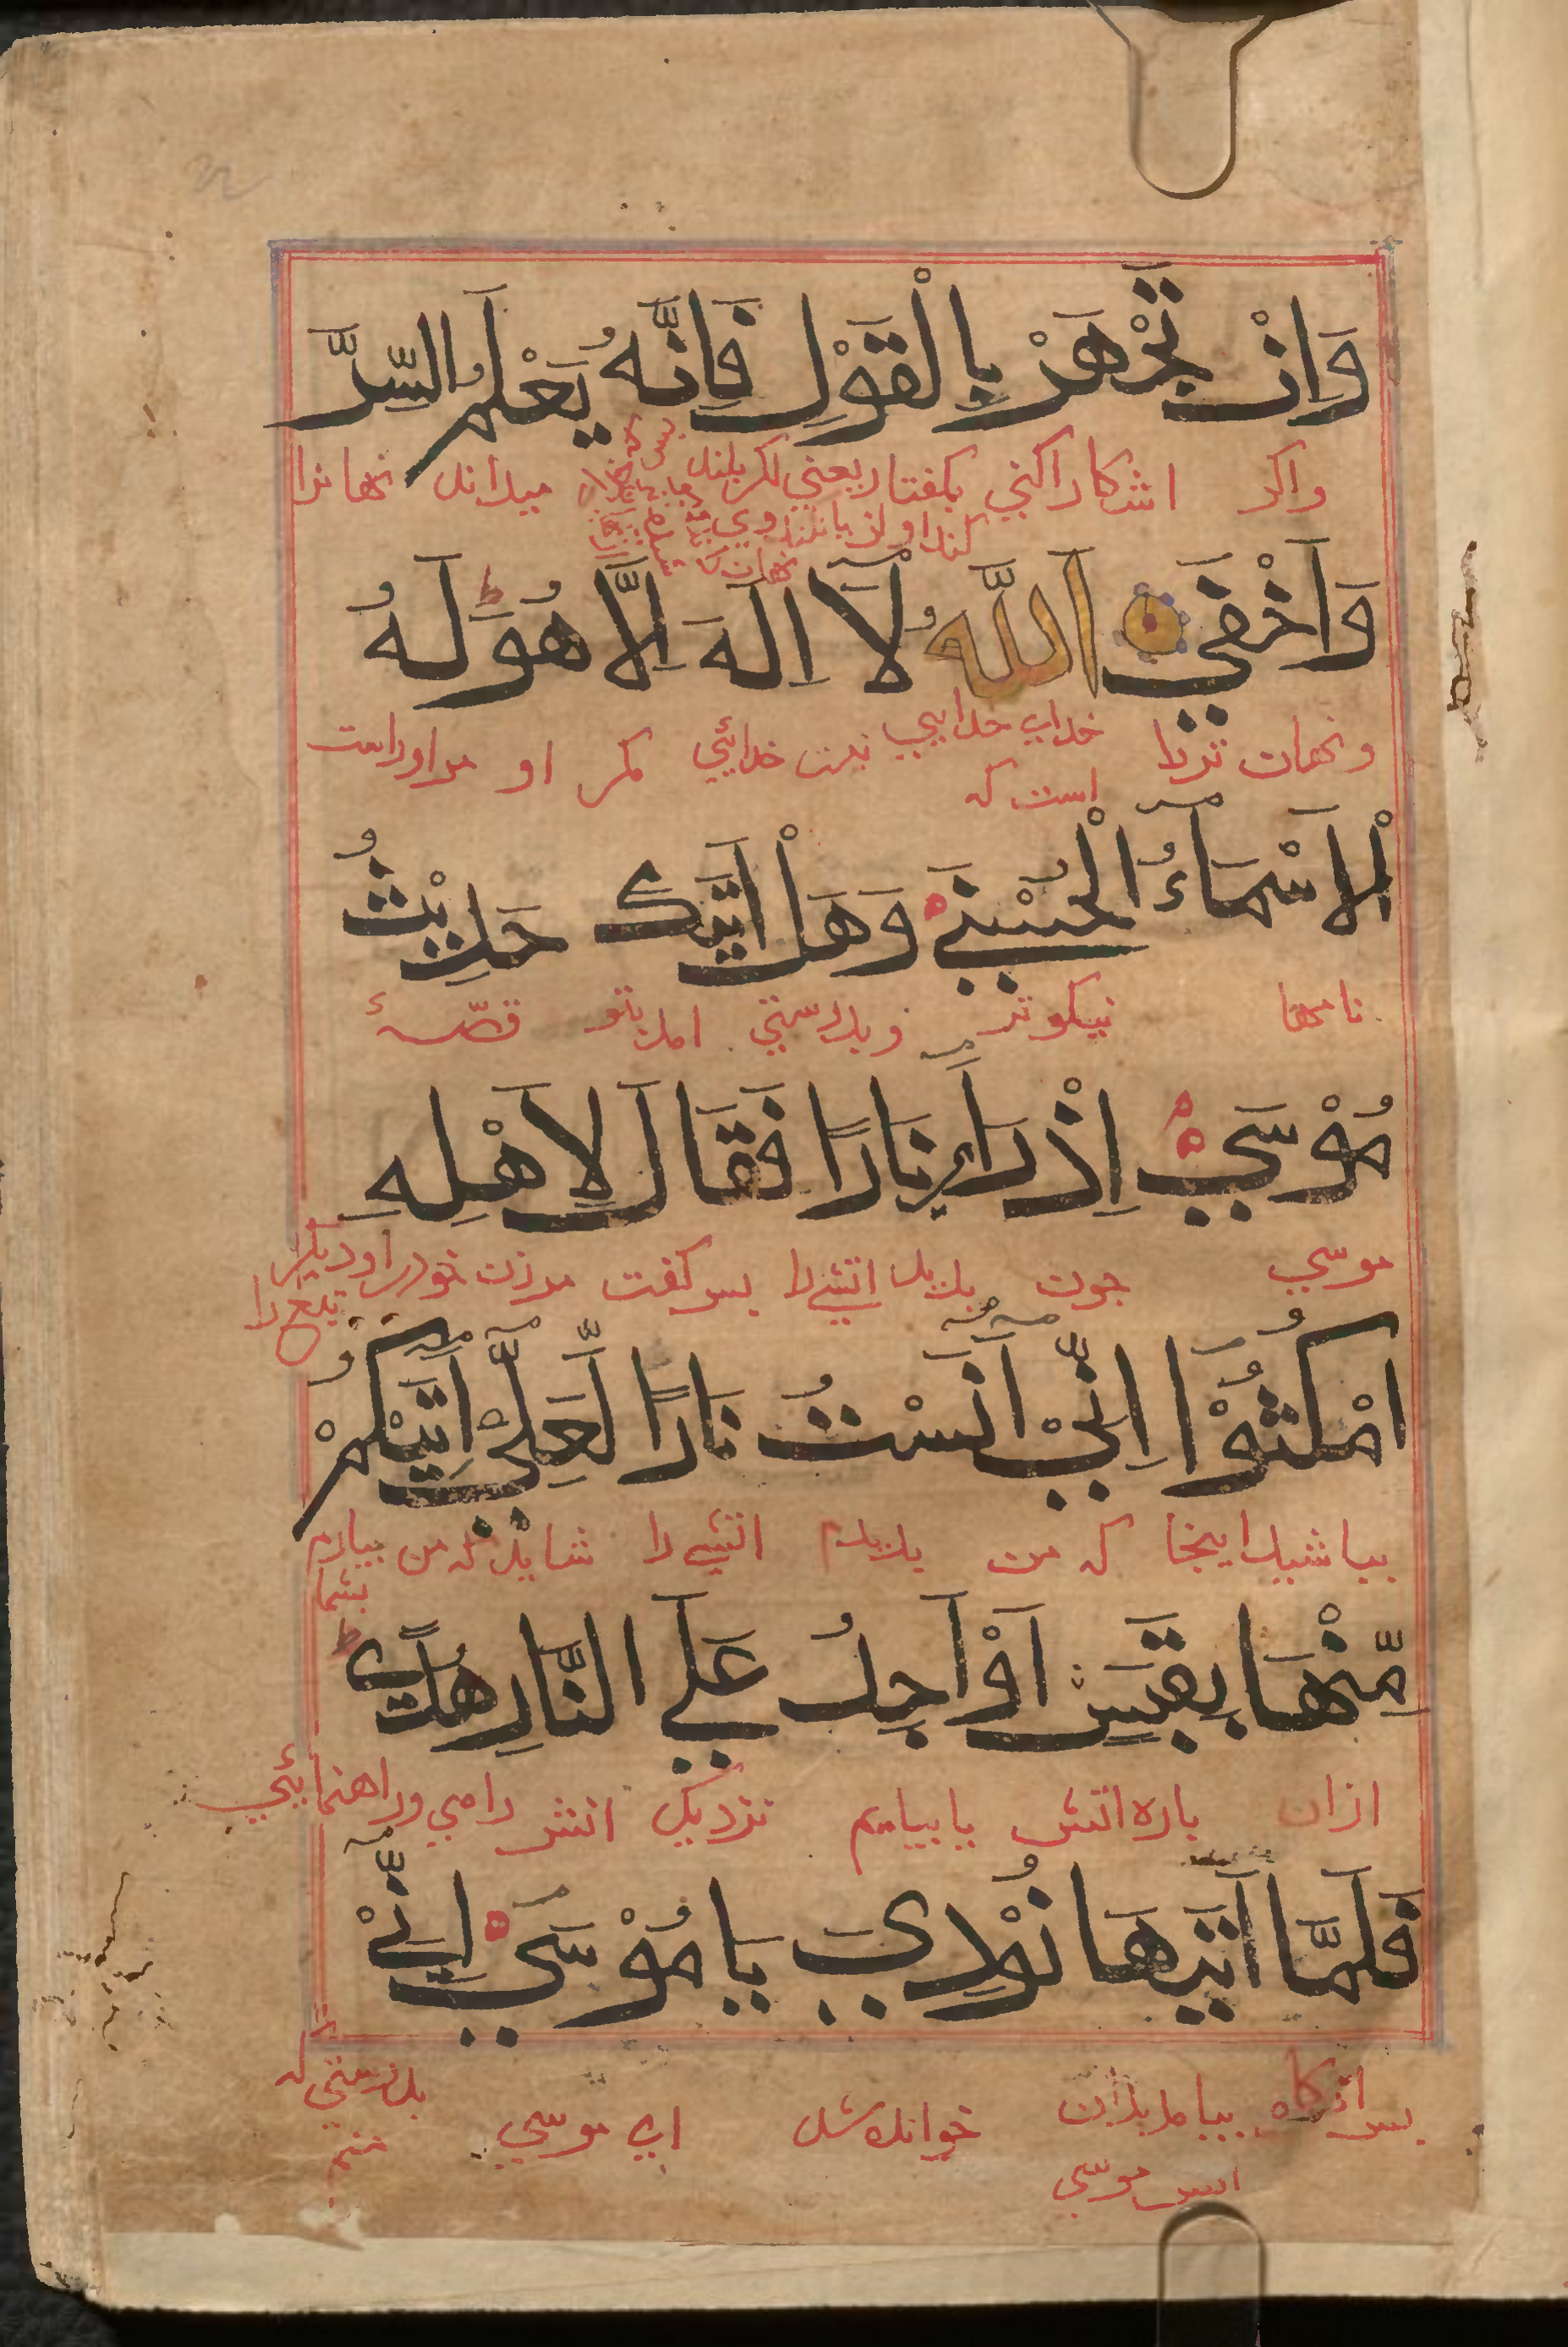 وَاِنْ تَجْهَرْ بِالْقَوْلِ فَاِنَّهُ يَعْلَمُ السِّرَّ
واكر اشكارا كني بكفتار يعني اكر بلند ميداند نهانرا
وَاَخْفٰي اَللّٰهُ لَآ اِلٰهَ اِلَّا هُوَ ط لَهُ
ونهان تررا خداي خدايي نيست خدايئي مكر او مراوراست
است كه
الْاَسْمَآءُ الْحُسْنٰي وَهَلْ اَتٰيكَ حَدِيْثُ
نامها نيكوتر وبدرستي امد بتو قصّهٔ
مُوْسٰي اِذْ رَاٰ نَارًا فَقَالَ لِاَهْلِهِ
موسي جون بديد اتشيرا بس كفت مرزن خودرا
امْكُثُوْٓا اِنِّيْٓ اٰنَسْتُ نَارًا لَّعَلِّيْٓ اٰتِيْكُمْ
بباشيد اينجا كه من بديدم اتشي را شايد كه من بيارم
بشما
مِّنْهَا بِقَبَسٍ اَوْ اَجِدُ عَلَي النَّارِ هُدًي ط
ازان باره اتش يا بيابم نزديك اتش راهي وراهنمايئي
فَلَمَّآ اَتٰيهَا نُوْدِيَ يَا مُوْسٰٓي اِنِّيْٓ
بس انكاه بيامد بدان خوانده شد اي موسي بدرستي كه
منم